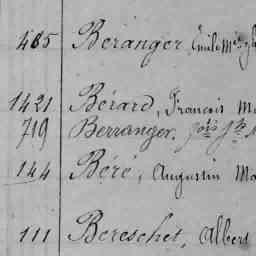 485 Béranger, Emile
1421 Bérard, Francois
719 Berranger,
144 Béré, Augustin
111 Bereschet, Albert